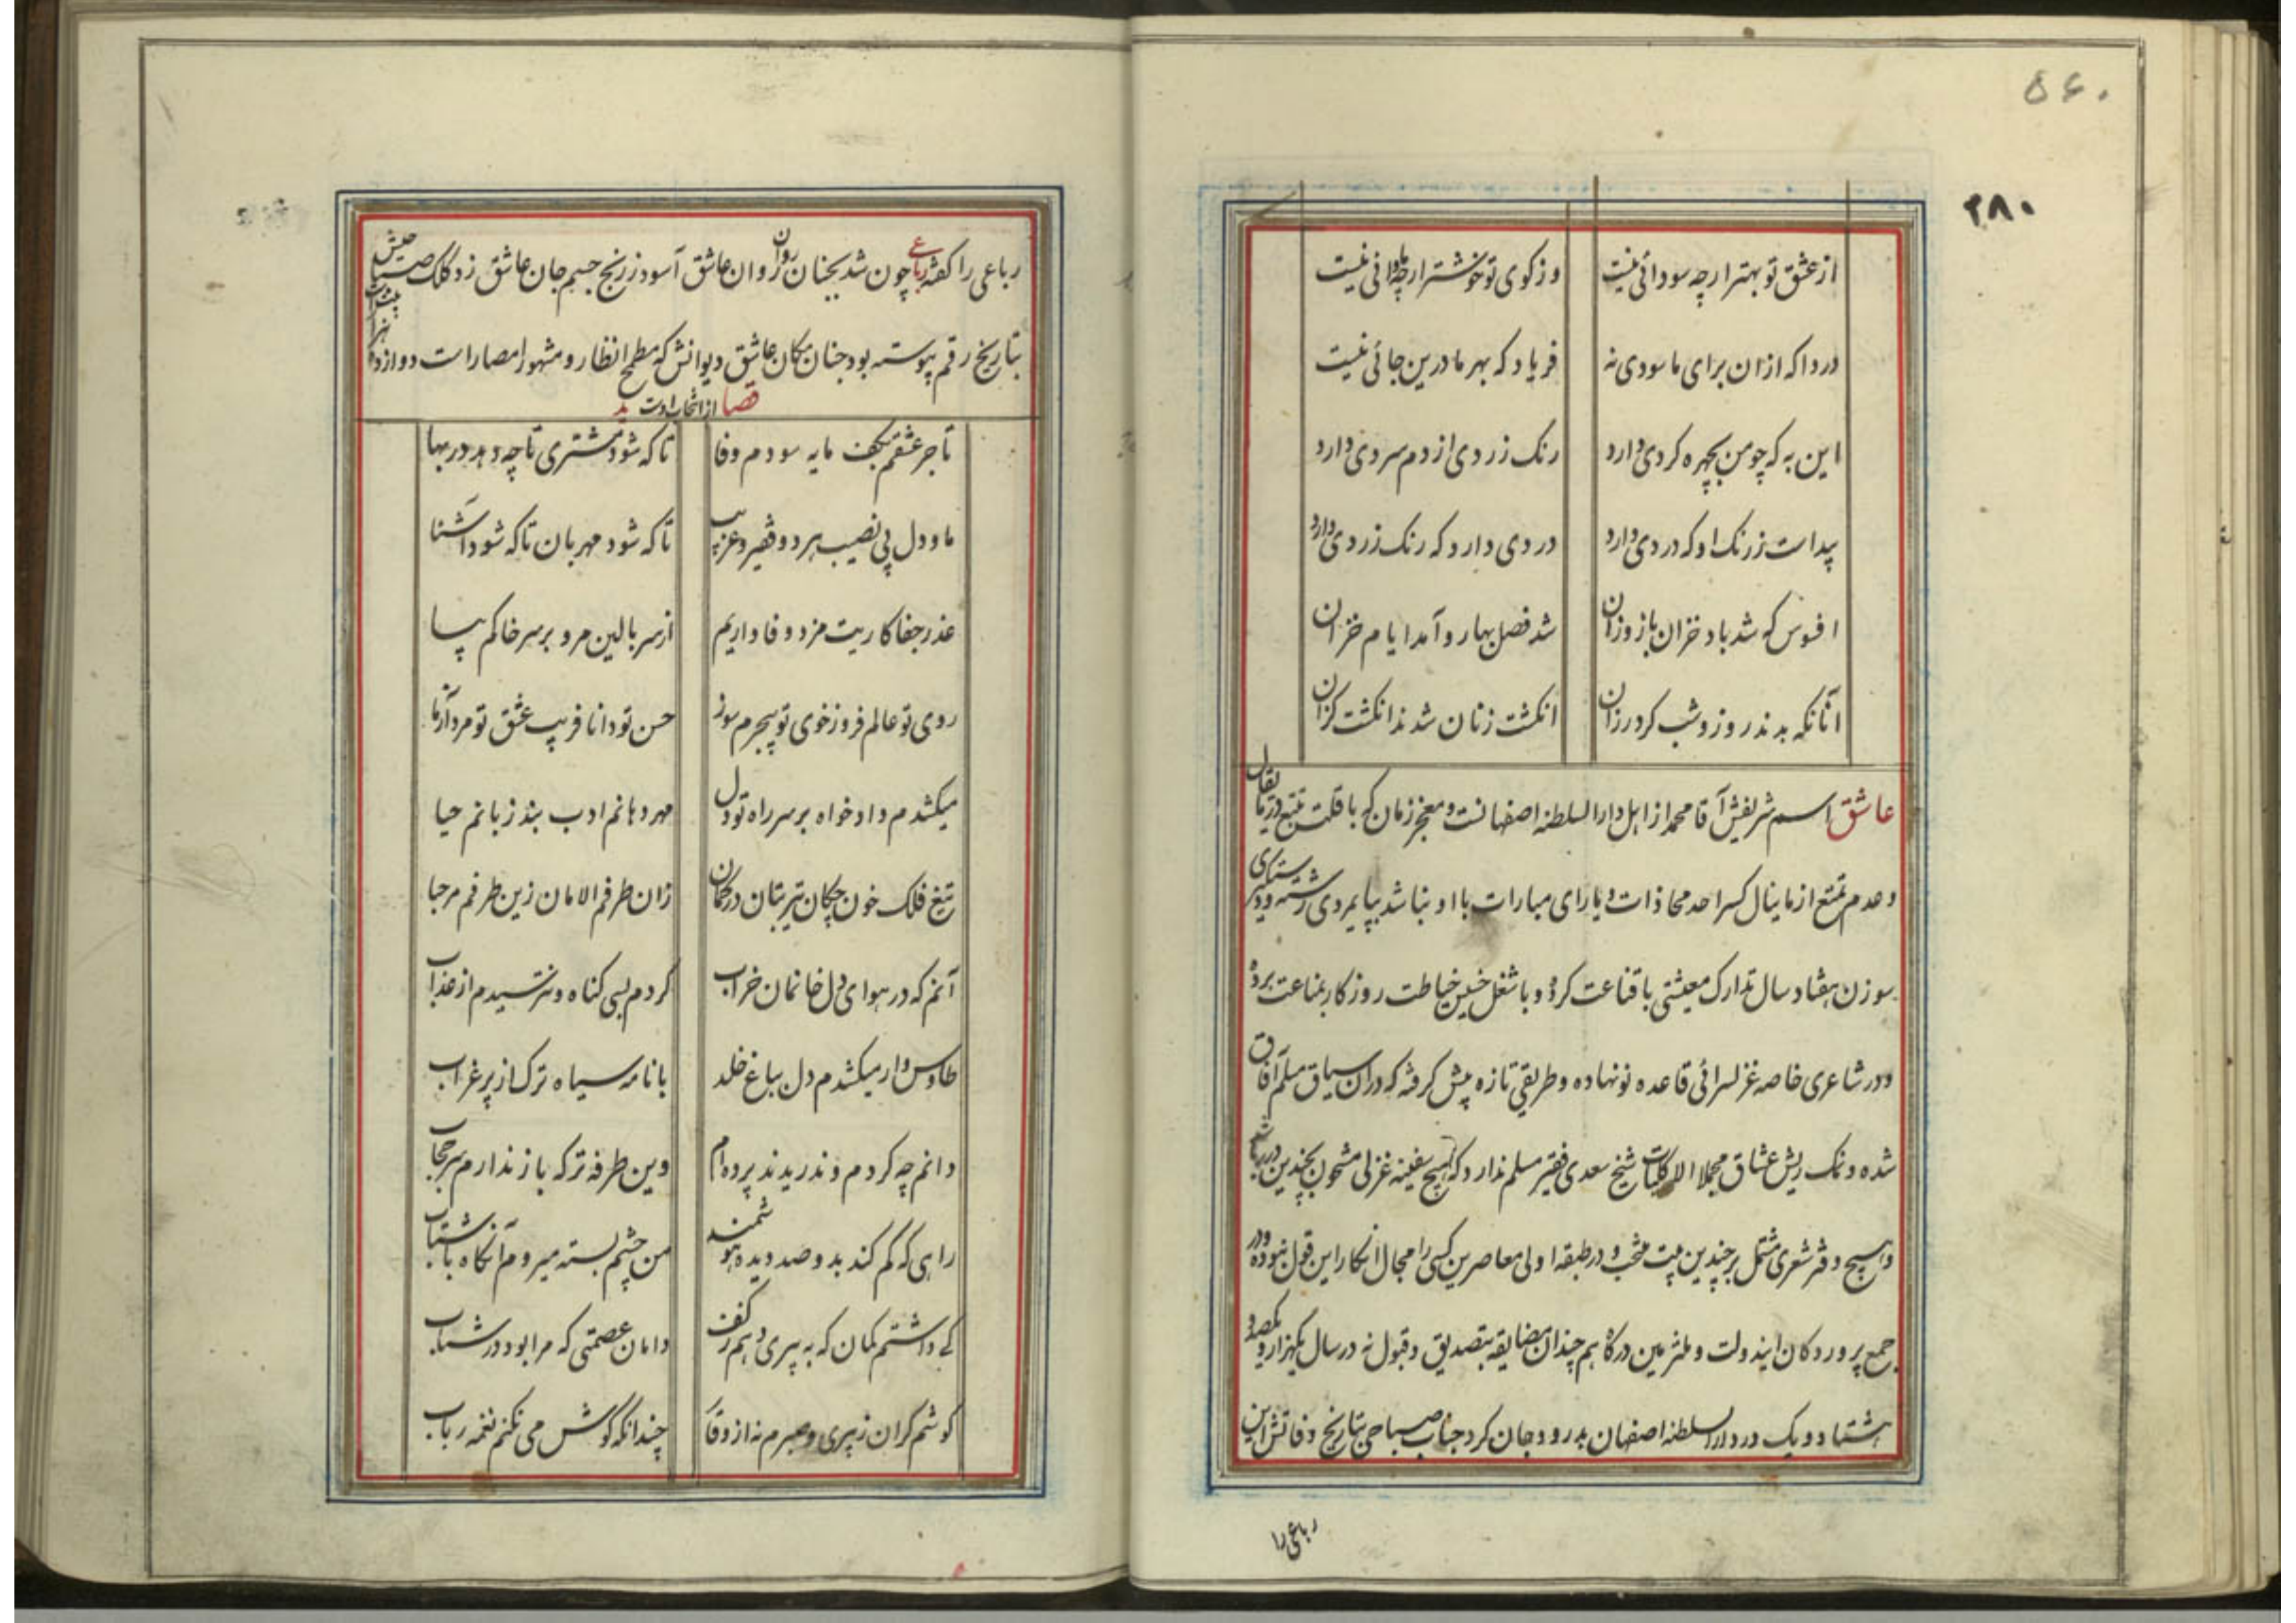 ۵۶۰
۲۸۰
از عشق تو بهتر ار چه سودائی نیست وز کوی تو خوشتر ار چه ماوائی نیست
دردا که ازان برای ما سودی نه فریاد که بهر ما درین جائی نیست
این به که چو من بچهره کردی دارد رنک زردی از دم سردی دارد
پیداست ز رنک او که دردی دارد دردی دارد که رنک زردی دارد
افسوس که شد باد خزان باز وزان شد فصل بهار و آمد ایام خزان
آنانکه بدند روز و شب کرد رزان انکشت زنان شدند انکشت کزان
عاشق اسم شریفش آقا محمد از اهل دار السلطنه اصفهانست و معجز زمان که با قلت تتبع در مقال
و عدم تمتع از ما ینال کسرا حد محاذات و یارای مبارات با او نباشد بپایمردی رشته و دستکیری
سوزن هفتاد سال تدارک معیشتی با قناعت کرده و با شغل خسیس خیاطت روزکار بمناعت برده
و در شاعری خاصه غزلسرائی قاعده نو نهاده و طریقی تازه پیش کرفته که دران سیاق مسلم آفاق
شده و نمک ریش عشاق مجملا الا کلیات شیخ سعدی فقیر مسلم ندارد که هیچ سفینه غزلی مشحون بچندین در
و هیچ دفتر شعری مشتمل بر چندین بیت منتخب و در طبقه اولی معاصرین کسی را مجال انکار این قول نبوده و در
جمع پروردکان ایندولت و ملتزمین درکاه هم چندان مضایقه بتصدیق و قبول نه در سال یکهزار و یکصد و
هشتاد و یک در دار السلطنه اصفهان بدرود جان کرد جناب صباحی بتاریخ وفاتش این
رباعی را
رباعی را کفته رباعی چون شد بجنان روان روان عاشق آسود ز رنج جسم جان عاشق زد کلک صباحی
بتاریخ رقم پیوسته بود جنان مکان عاشق دیوانش که مطمح انظار و مشهور امصار است دوازده هزار
از انتخاب اوست قصاید
تاجر عشقم بکف مایه سودم وفا تا که شود مشتری تا چه دهد در بها
ما و دل بی نصیب هر دو فقیر و غریب تا که شود مهربان تا که شود آشنا
عذر جفاکاریت مزد وفاداریم از سر بالین مرو بر سر خاکم بیا
روی تو عالم فروز خوی تو بیجرم سوز حسن تو دانا فریب عشق تو مرد آزما
میکشدم دادخواه بر سر راه تو دل مهر دهانم ادب بند زبانم حیا
تیغ فلک خون چکان تیر بتان در کمان زان طرفم الامان زین طرفم مرحبا
آنم که در هوای دل خانمان خراب کردم بسی کناه و نترسیدم از عذاب
طاوس وار میکشدم دل بباغ خلد با نامه سیاه ترک از پر غراب
دانم چه کردم و ندریدند پرده ام وین طرفه تر که باز ندارم سر حجاب
راهی که کم کند بدو صد دیده هوشمند من چشم بسته میروم آنکاه با شتاب
کی داشتم کمان که به پیری دهم ز کف دامان عصمتی که مرا بود در شباب
کوشم کران ز پیری و صبرم نه از وقار چندانکه کوش می نکنم نغمه رباب